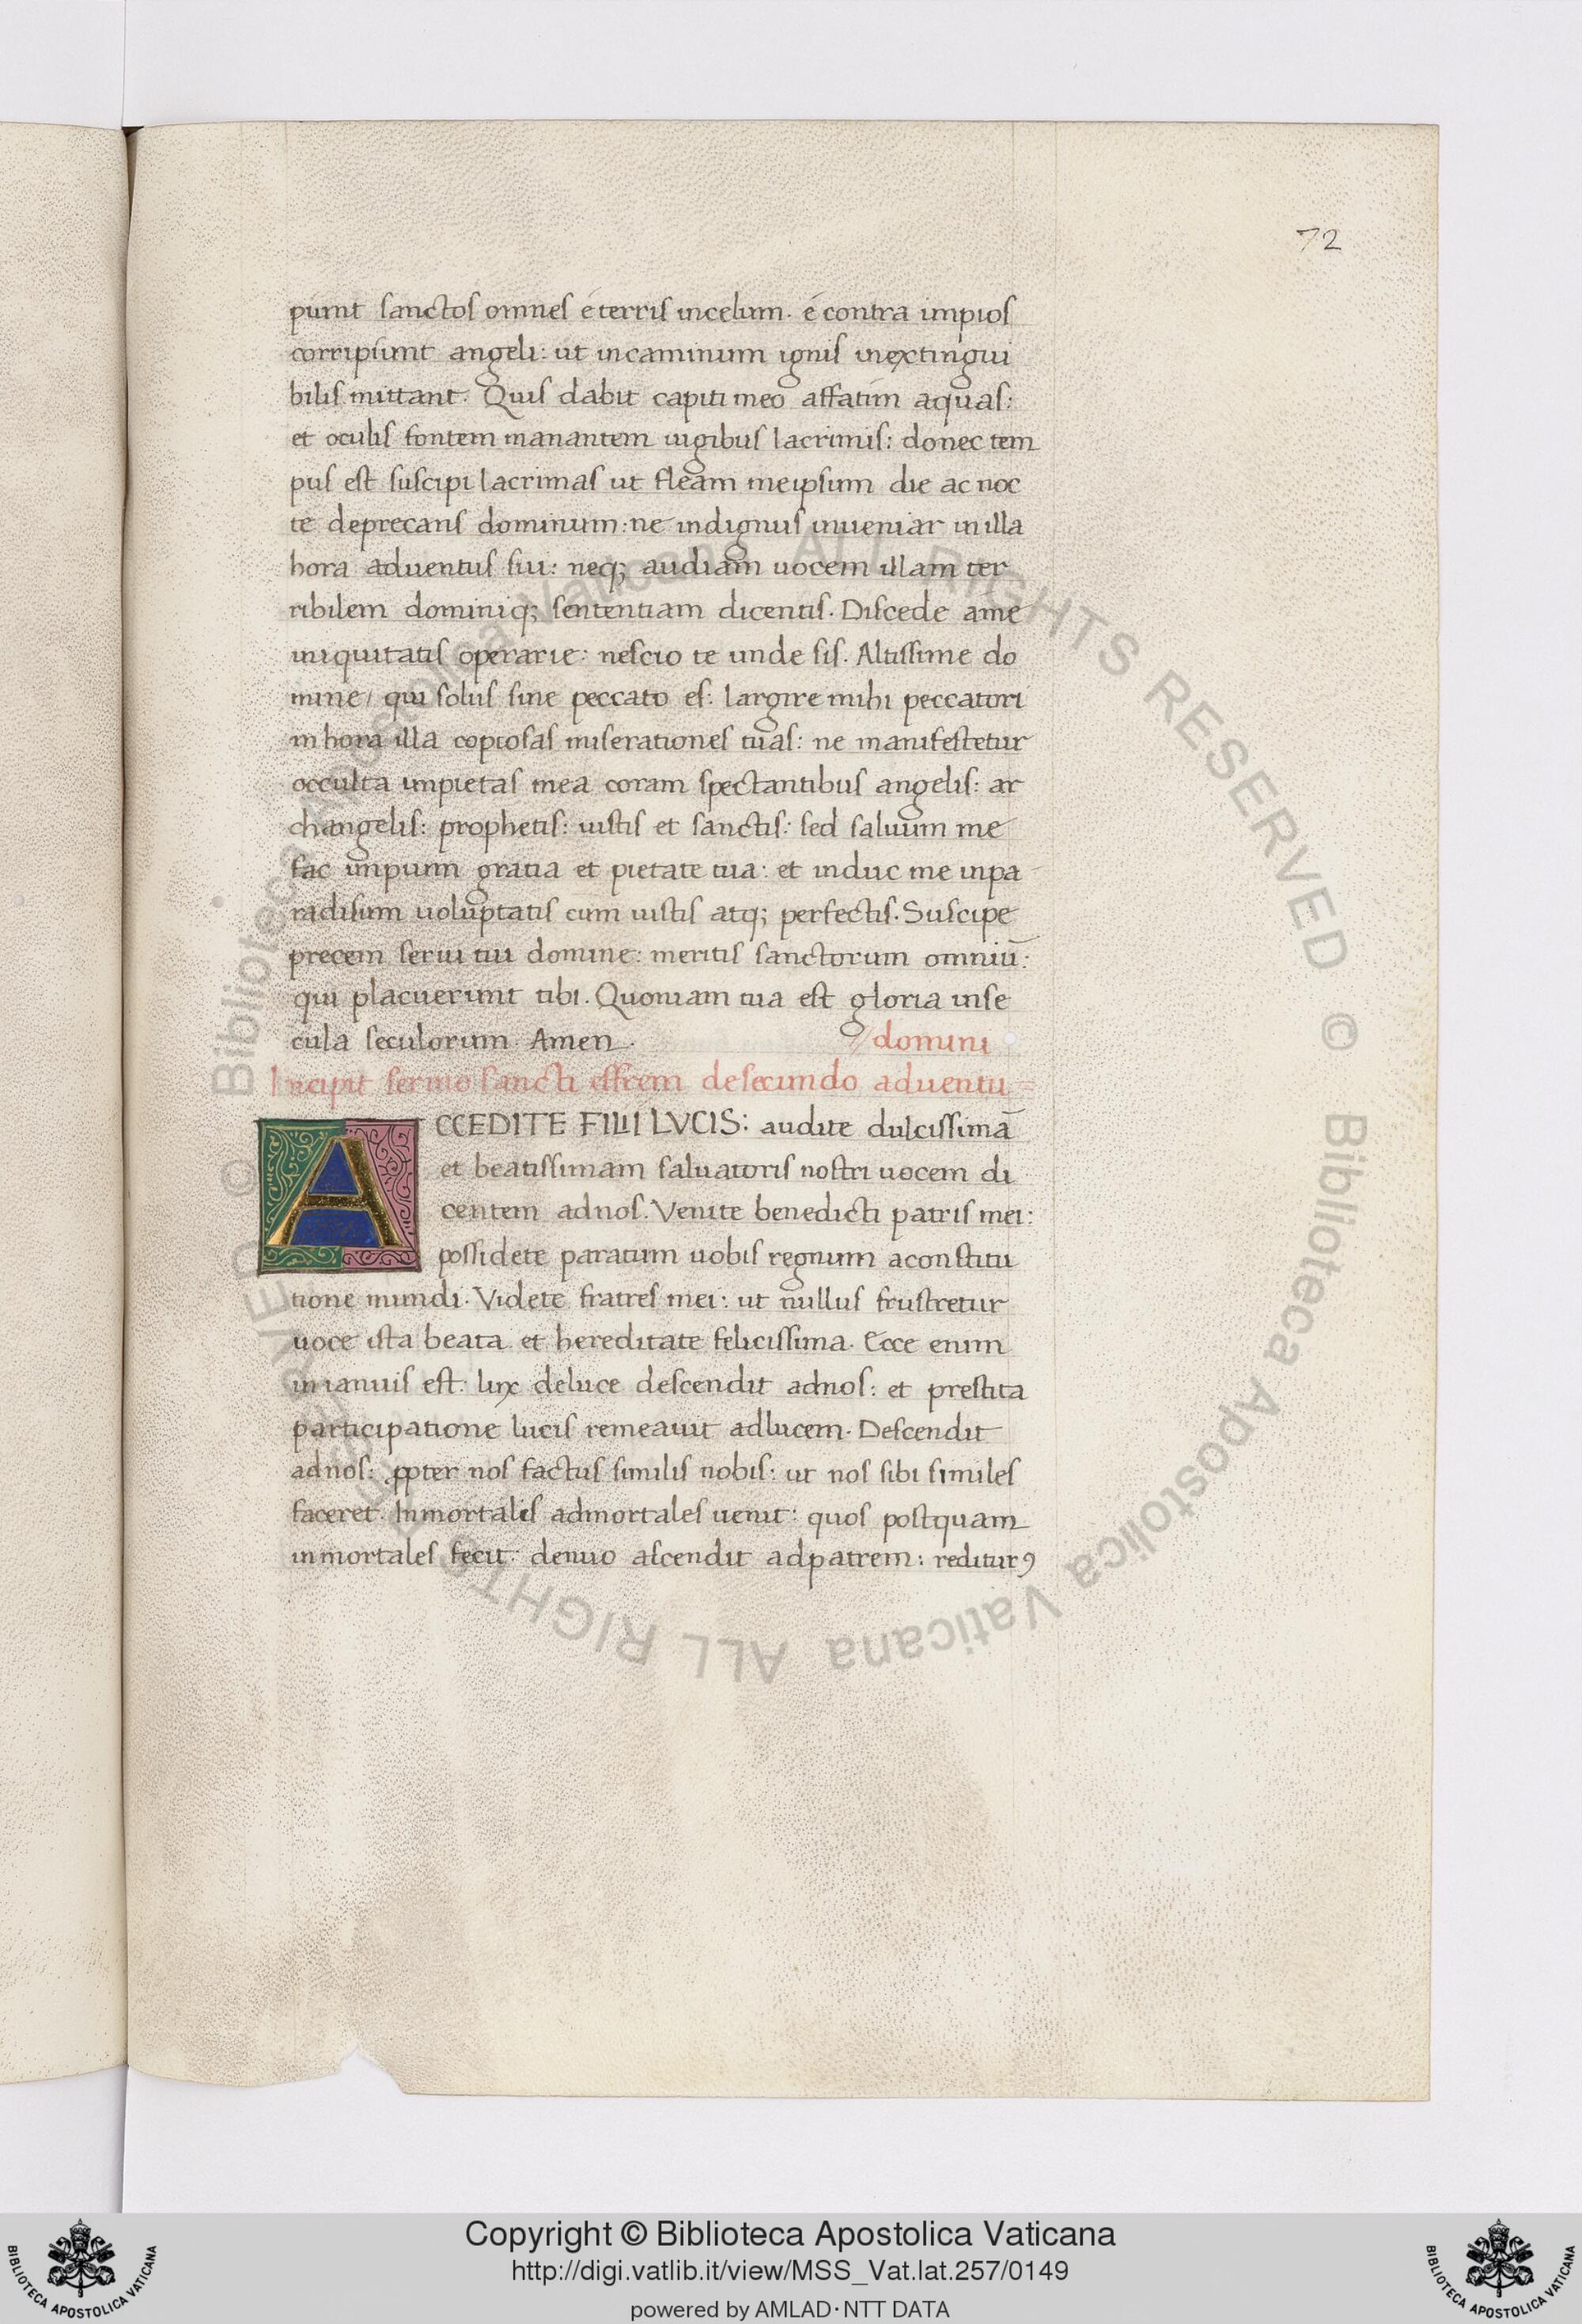 72
piunt sanctos omnes é terris incelum. é contra impios
corripiunt angeli: ut incaminum ignis inextingui
bilis mittant. Quis dabit capiti meo affatim aquas:
et oculis fontem manantem iugibus lacrimis: donec tem
pus est suscipi lacrimas ut fleam meipsum die ac noc
te deprecans dominum: ne indignus inueniar in illa
hora aduentus sui: neq; audiam uocem illam ter
ribilem dominiq; sententiam dicentis. Discede ame
iniquitatis operarie: nescio te unde sis. Altissime do
mine/ qui solus sine peccato es: largire mihi peccatori
in hora illa copiosas miserationes tuas: ne manifestetur
occulta impietas mea coram spectantibus angelis: ar
changelis: prophetis: iustis et sanctis: sed saluum me
fac impium gratia et pietate tua: et induc me inpa
radisum uoluptatis cum iustis atq; perfectis. Suscipe
precem serui tui domine: meritis sanctorum omniū:
qui placuerunt tibi. Quoniam tua est gloria inse
cula seculorum. Amen.
//domini
Incipit sermo sancti effrem desecundo aduentu=
ACCEDITE FILII LVCIS: audite dulcissimā
et beatissimam saluatoris nostri uocem di
centem adnos. Venite benedicti patris mei:
possidete paratum uobis regnum aconstitu
tione mundi. Videte fratres mei: ut nullus frustretur
uoce ista beata et hereditate felicissima. Ecce enim
in ianuis est. lux deluce descendit adnos: et prestita
participatione lucis remeauit adlucem. Descendit
adnos: ꝓpter nos factus similis nobis: ut nos sibi similes
faceret. Inmortalis admortales uenit: quos postquam
inmortales fecit: denuo ascendit adpatrem: rediturꝰ
© Biblioteca Apostolica Vaticana ALL RIGHTS RESERVED © Biblioteca Apostolica Vaticana ALL RIGHTS RESERVED
Copyright © Biblioteca Apostolica Vaticana
http://digi.vatlib.it/view/MSS_Vat.lat.257/0149
powered by AMLAD·NTT DATA
BIBLIOTECA APOSTOLICA VATICANA
BIBLIOTECA APOSTOLICA VATICANA